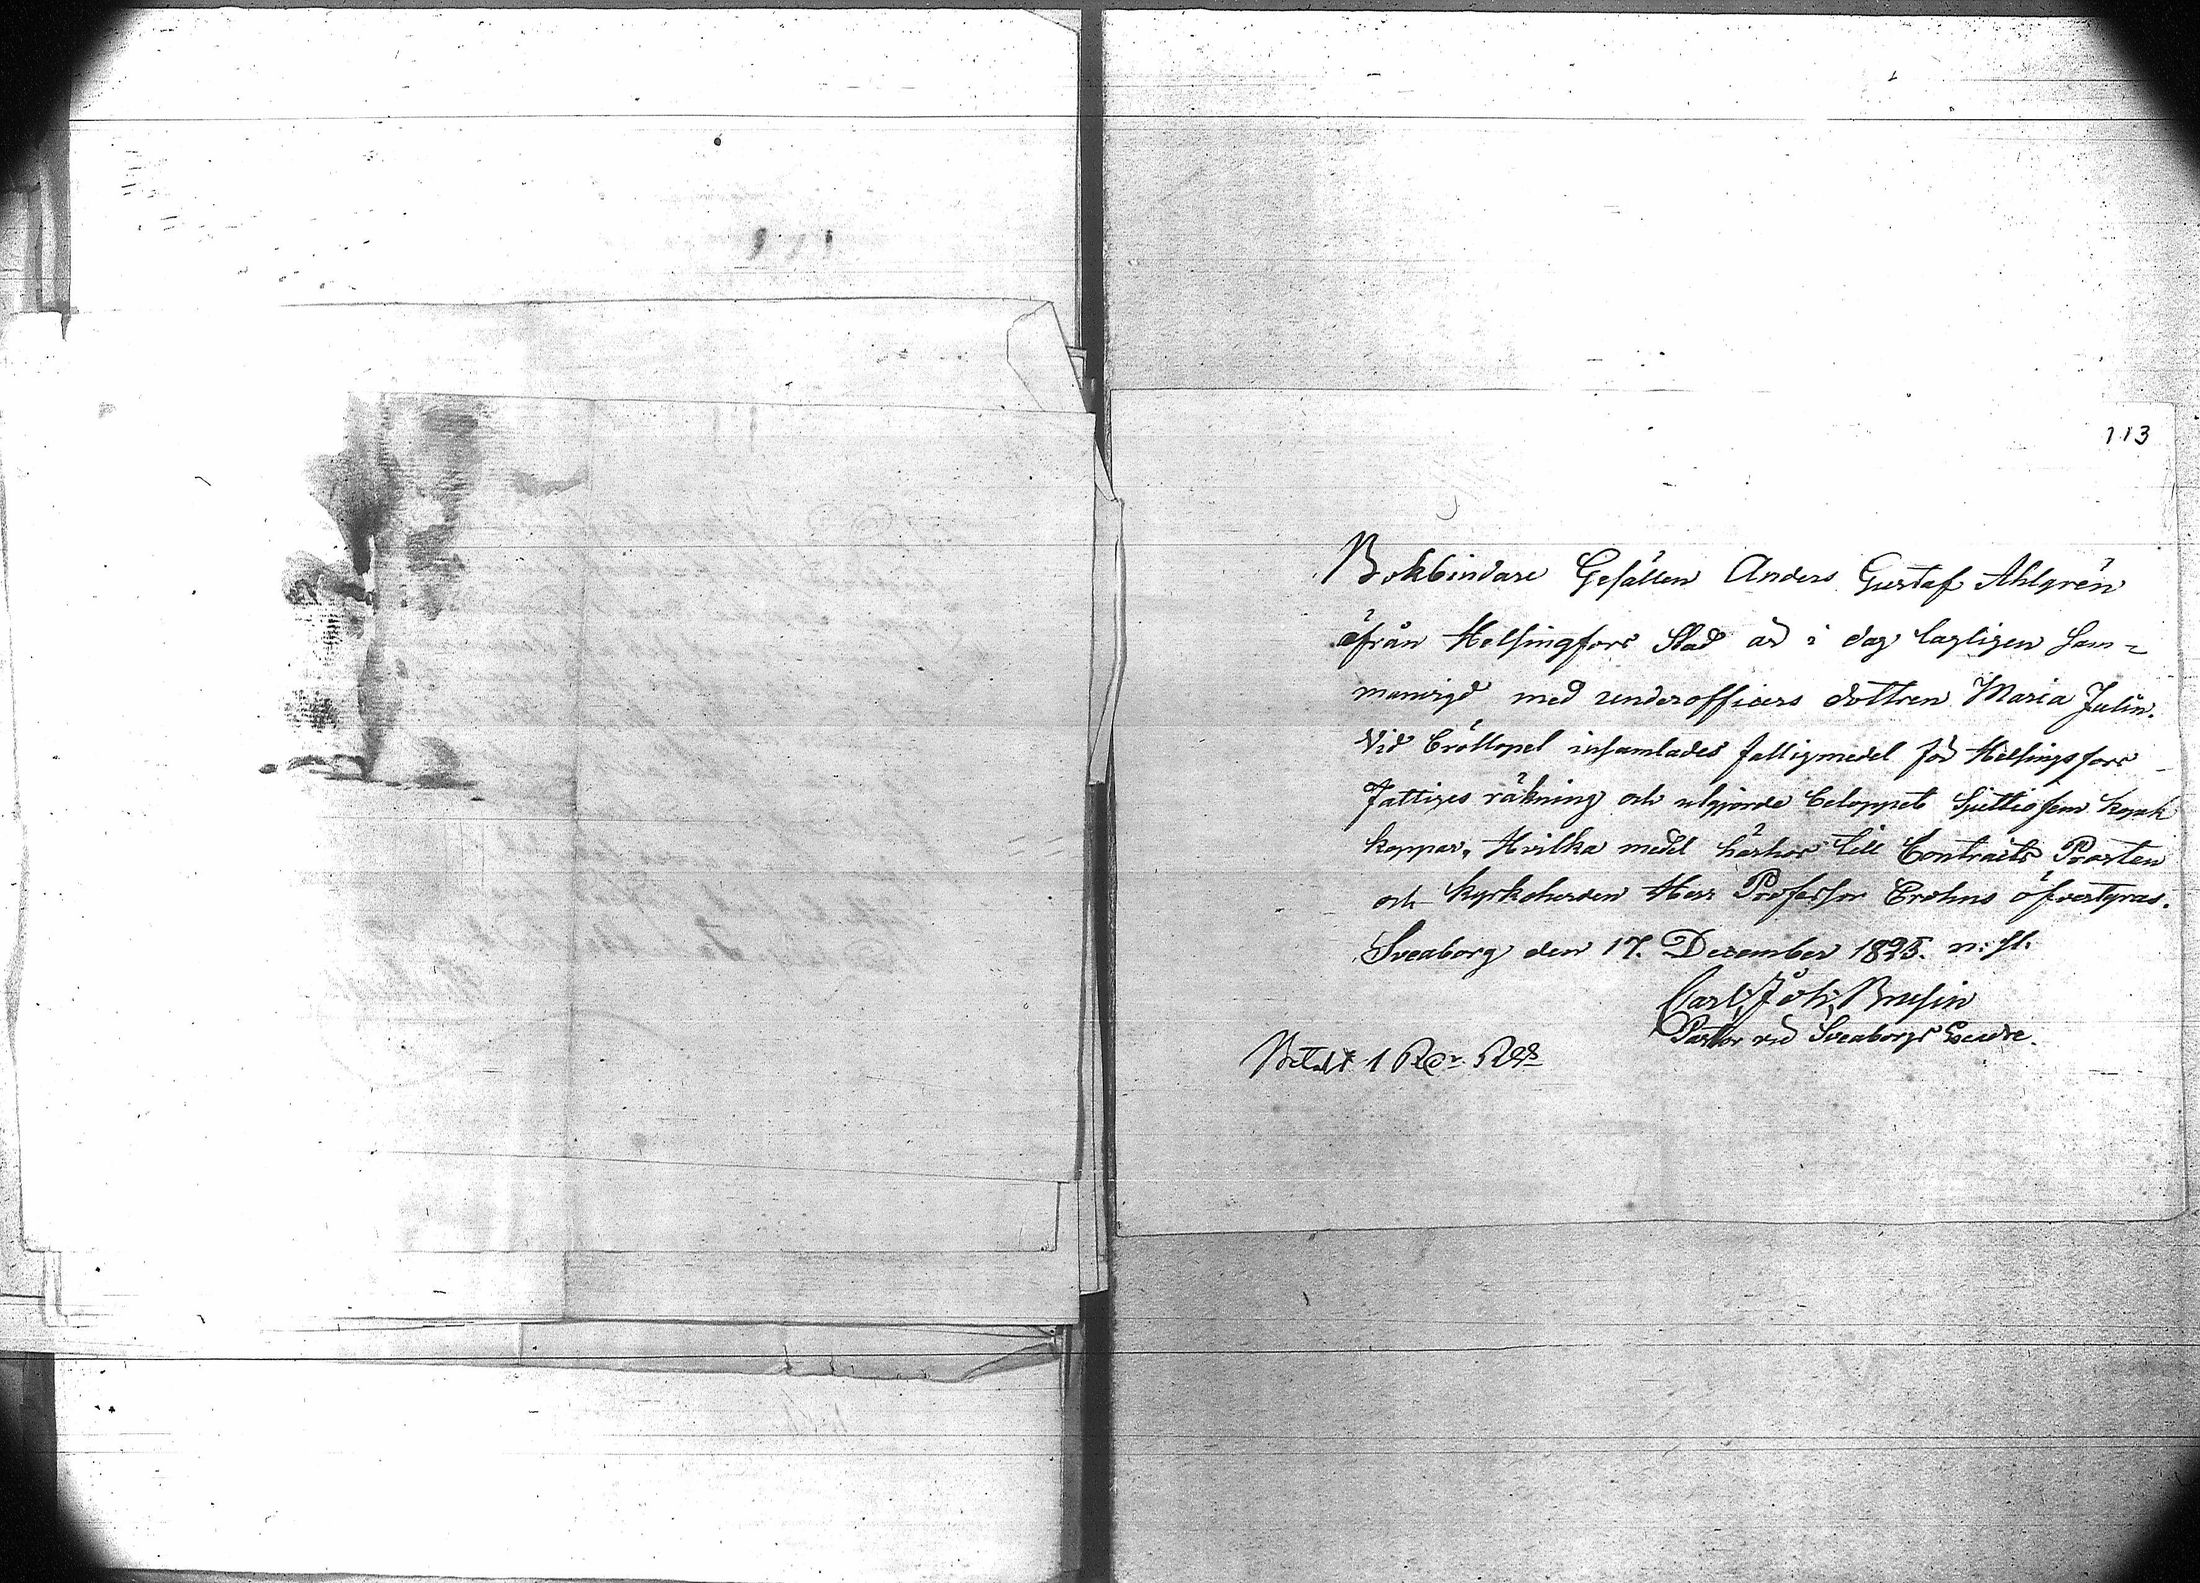 113
Bokbindare Gesällen Anders Gustaf Ahlgrén
ifrån Helsingfors Stad är i dag lagligen sam=
manvigd med underofficers dottren Maria Julin.
Vid bröllopet insamlades fattigmedel för Helsingfors
Fattiges räkning och utgjorde beloppet Sjuttiofem kopek
koppar, Hvilka medel härhos till Contracts Prosten
och kyrkoherden Herr Professor Crohns öfverlyras.
Sveaborg den 17. December 1825. n: st:
Carl Joh: Brusin
Pastor vid Sveaborgs Escadre.
Betalt 1 Rdr Rgs